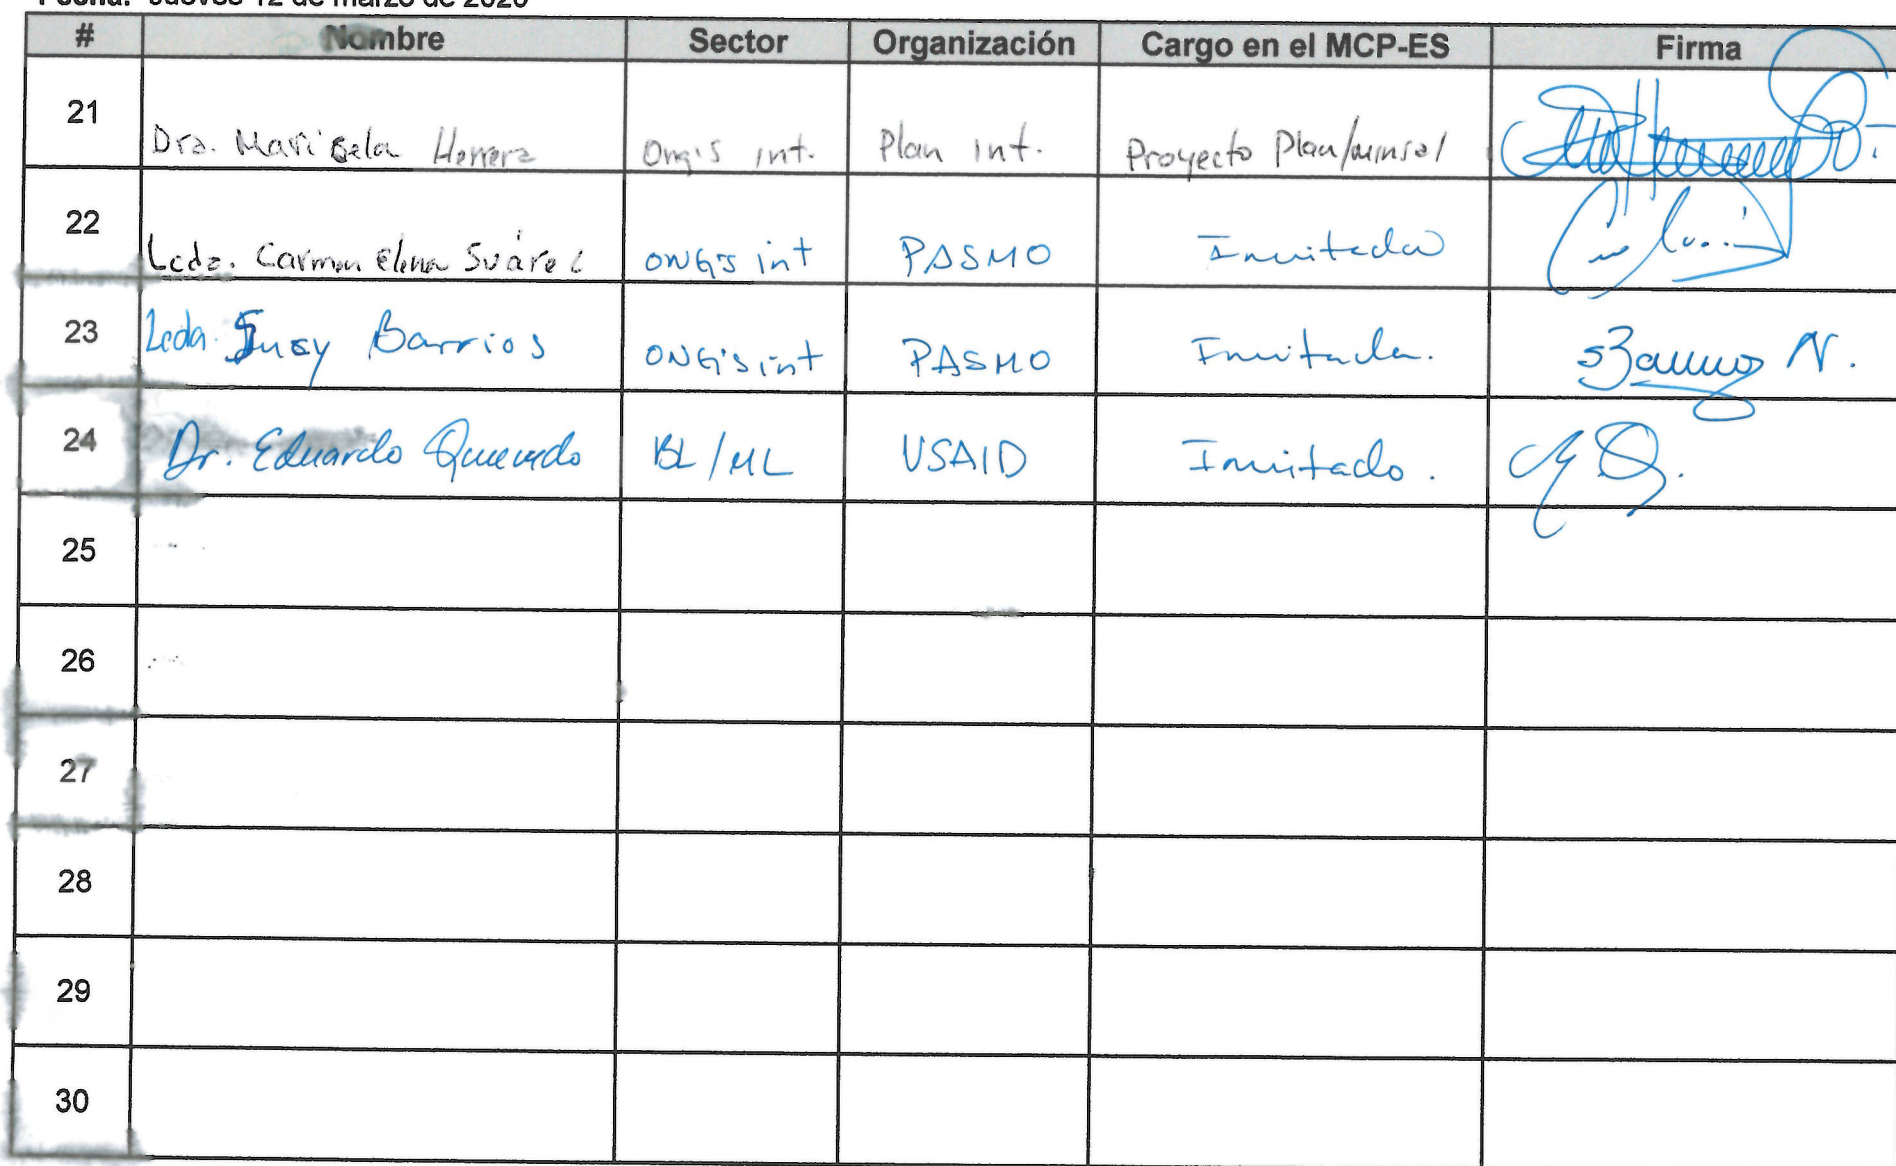 Fecha: Jueves 12 de marzo de 2020
# Nombre Sector Organización Cargo en el MCP-ES Firma
21 Dra. Marisela Herrera Ong's int. Plan int. Proyecto Plan/minsal
22 Lcda. Carmen Elena Suárez ONG's int PASMO Invitada
23 Lcda. Susy Barrios ONG's int PASMO Invitada.
24 Dr. Eduardo Quevedo BL/ML USAID Invitado.
25
26
27
28
29
30